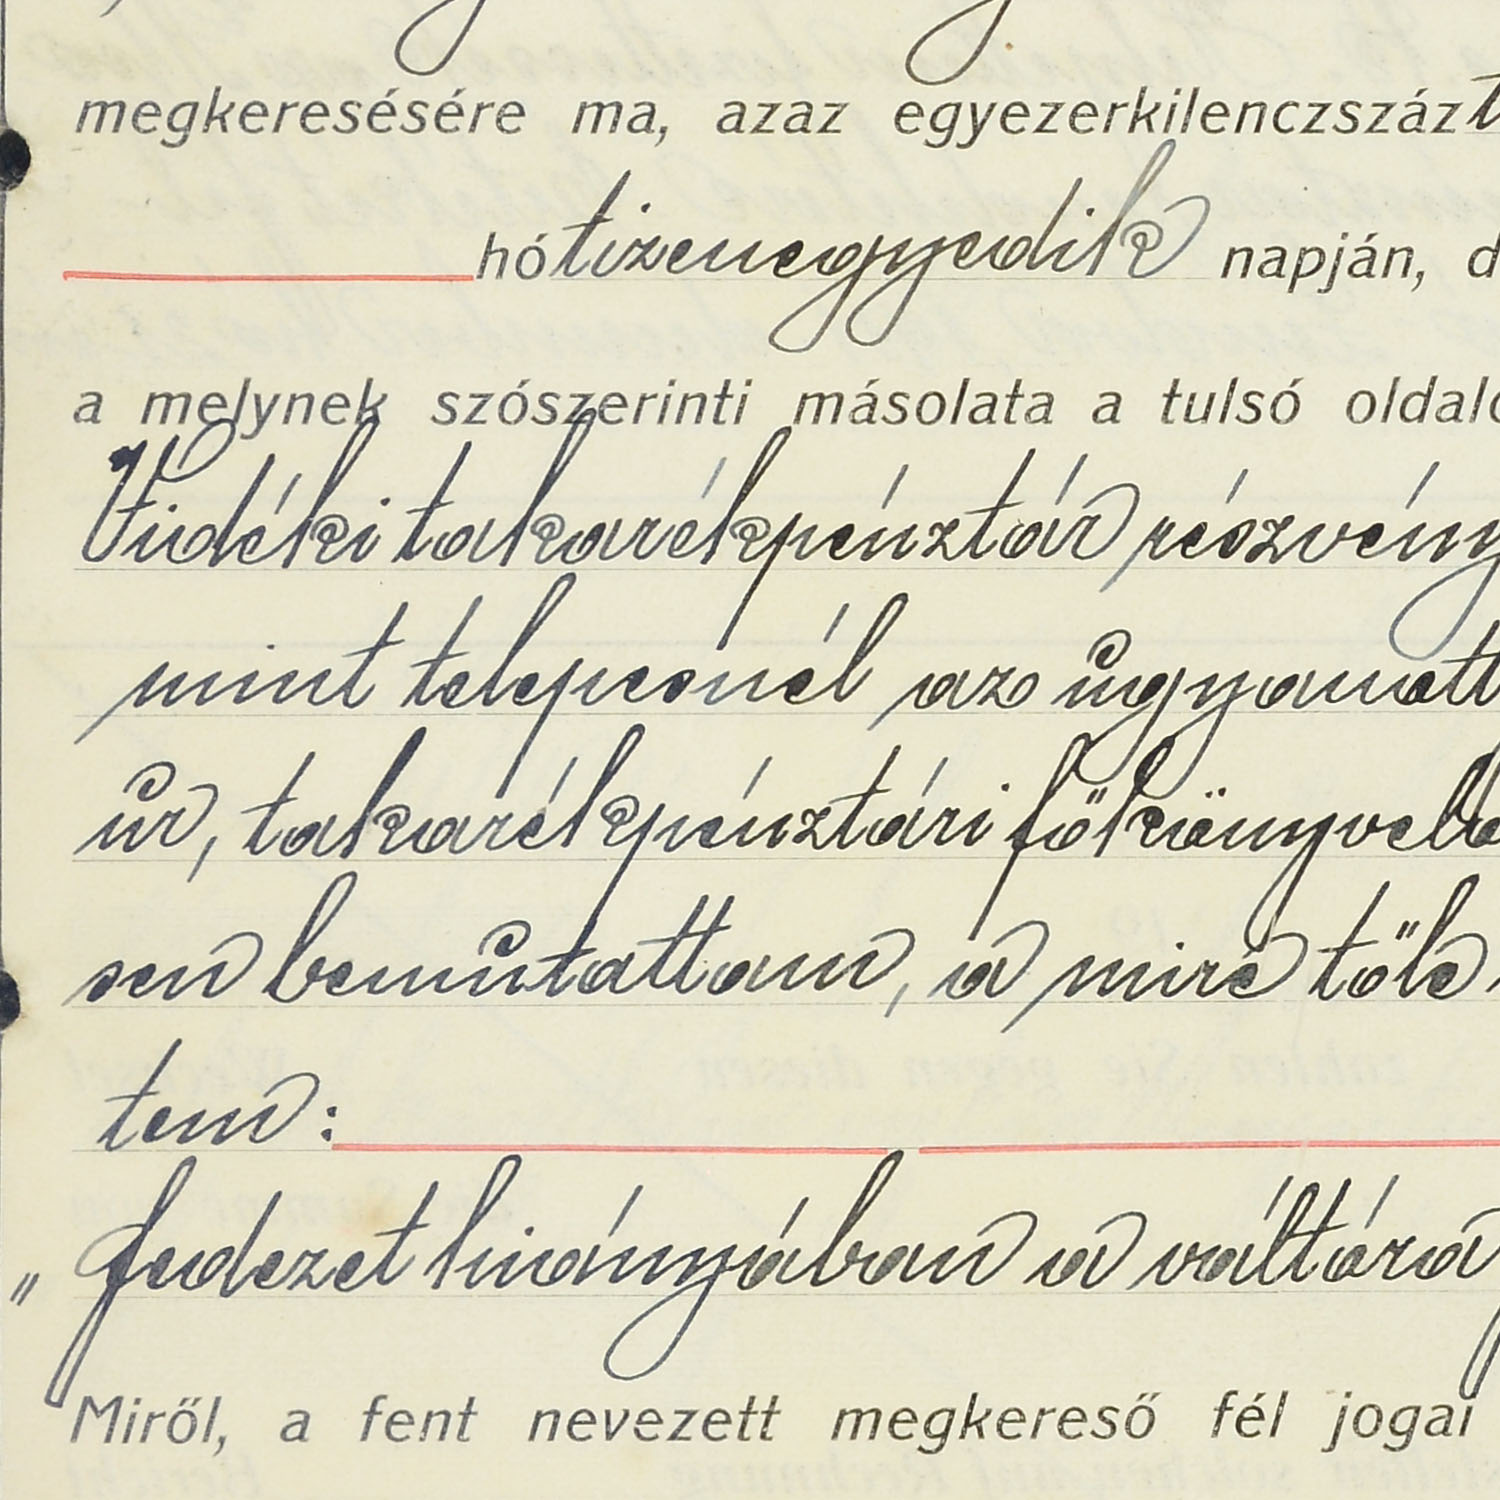 megkeresésére ma, azaz egyezerkilenczszázt
hó tizenegyedik napján, d
a melynek szószerinti másolata a tulsó oldalo
Vidéki takarékpénztár részvény
mint telepesnél az ugyanott
úr, takarékpénztári főkönyvelő
sen bemutattam, a mire tőle
tem:
"fedezet hiányában a váltóra
Miről, a fent nevezett megkereső fél jogai